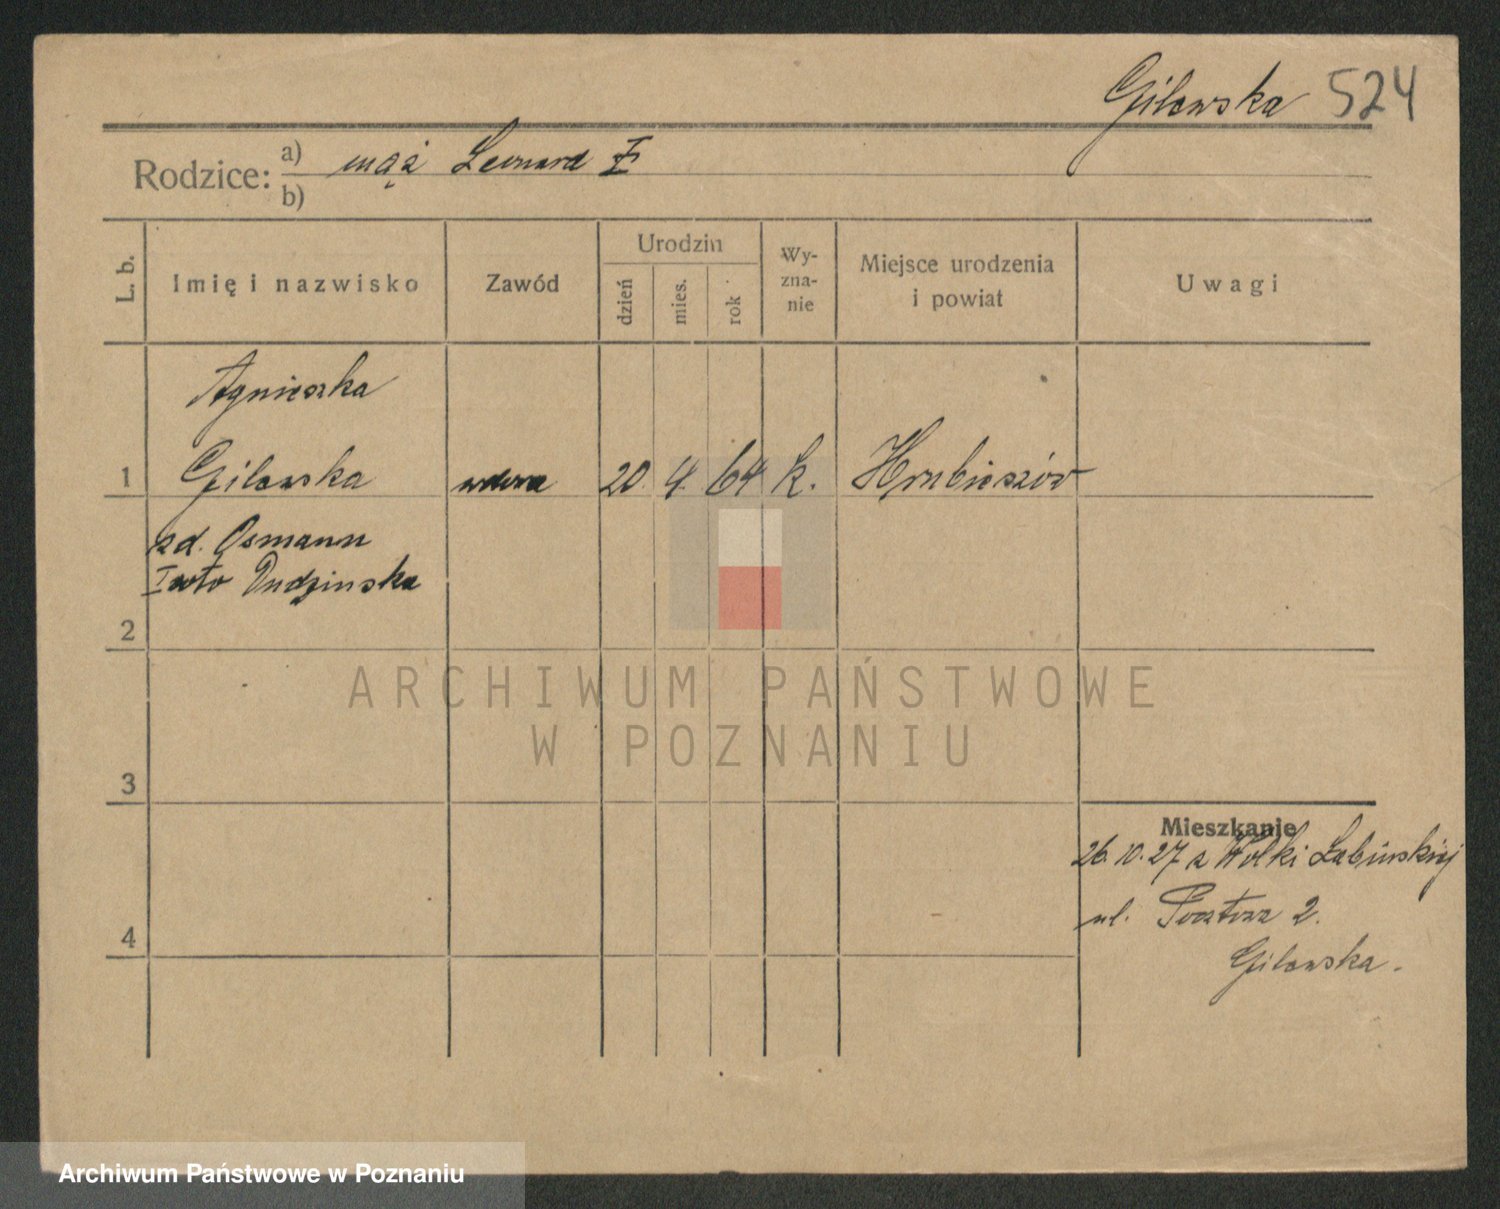 Gilewska 524
Rodzice: a) mąż Leonard
b)
L. b.
Imię i nazwisko
Zawód
Urodzin
dzień
mies.
rok
Wy-
zna-
nie
Miejsce urodzenia
i powiat
Uwagi
Agnieszka
1 Gilewska wdowa 20 4 64 k. Hrubieszów
zd. Osmann
I voto Dudzinska
2
ARCHIWUM PAŃSTWOWE
W POZNANIU
3
Mieszkanie
26.10.27 z Wolki Łabuńskiej
4
ul. 2.
Gilewska.
Archiwum Państwowe w Poznaniu